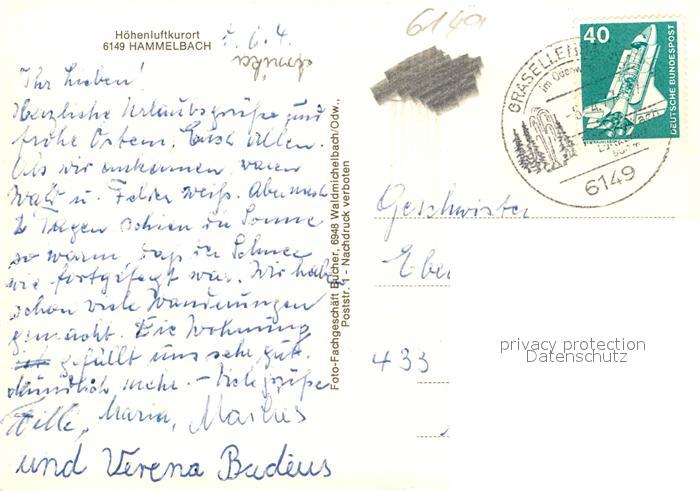 Höhenluftkurort
6149 HAMMELBACH
6149
6. 4.
Ihr Lieben!
Herzliche Urlaubsgrüße und
frohe Ostern, Euch Allen.
Als wir ankamen, waren
Wald u. Felder weiß. Aber nach
2 Tagen schien die Sonne
so warm, daß der Schnee
wie fortgefegt war. Wir haben
schon viele Wanderungen
gemacht. Die Wohnung
gefällt uns sehr gut.
Mündlich mehr. – Viele Grüße
Willi, Maria, Markus
und Verena Badeus
Foto-Fachgeschäft Bücher, 6948 Waldmichelbach/Odw.,
Poststr. 1 - Nachdruck verboten
GRASELLEN
im Odenw
6149
40
DEUTSCHE BUNDESPOST
Geschwister
Ebe
433
privacy protection
Datenschutz